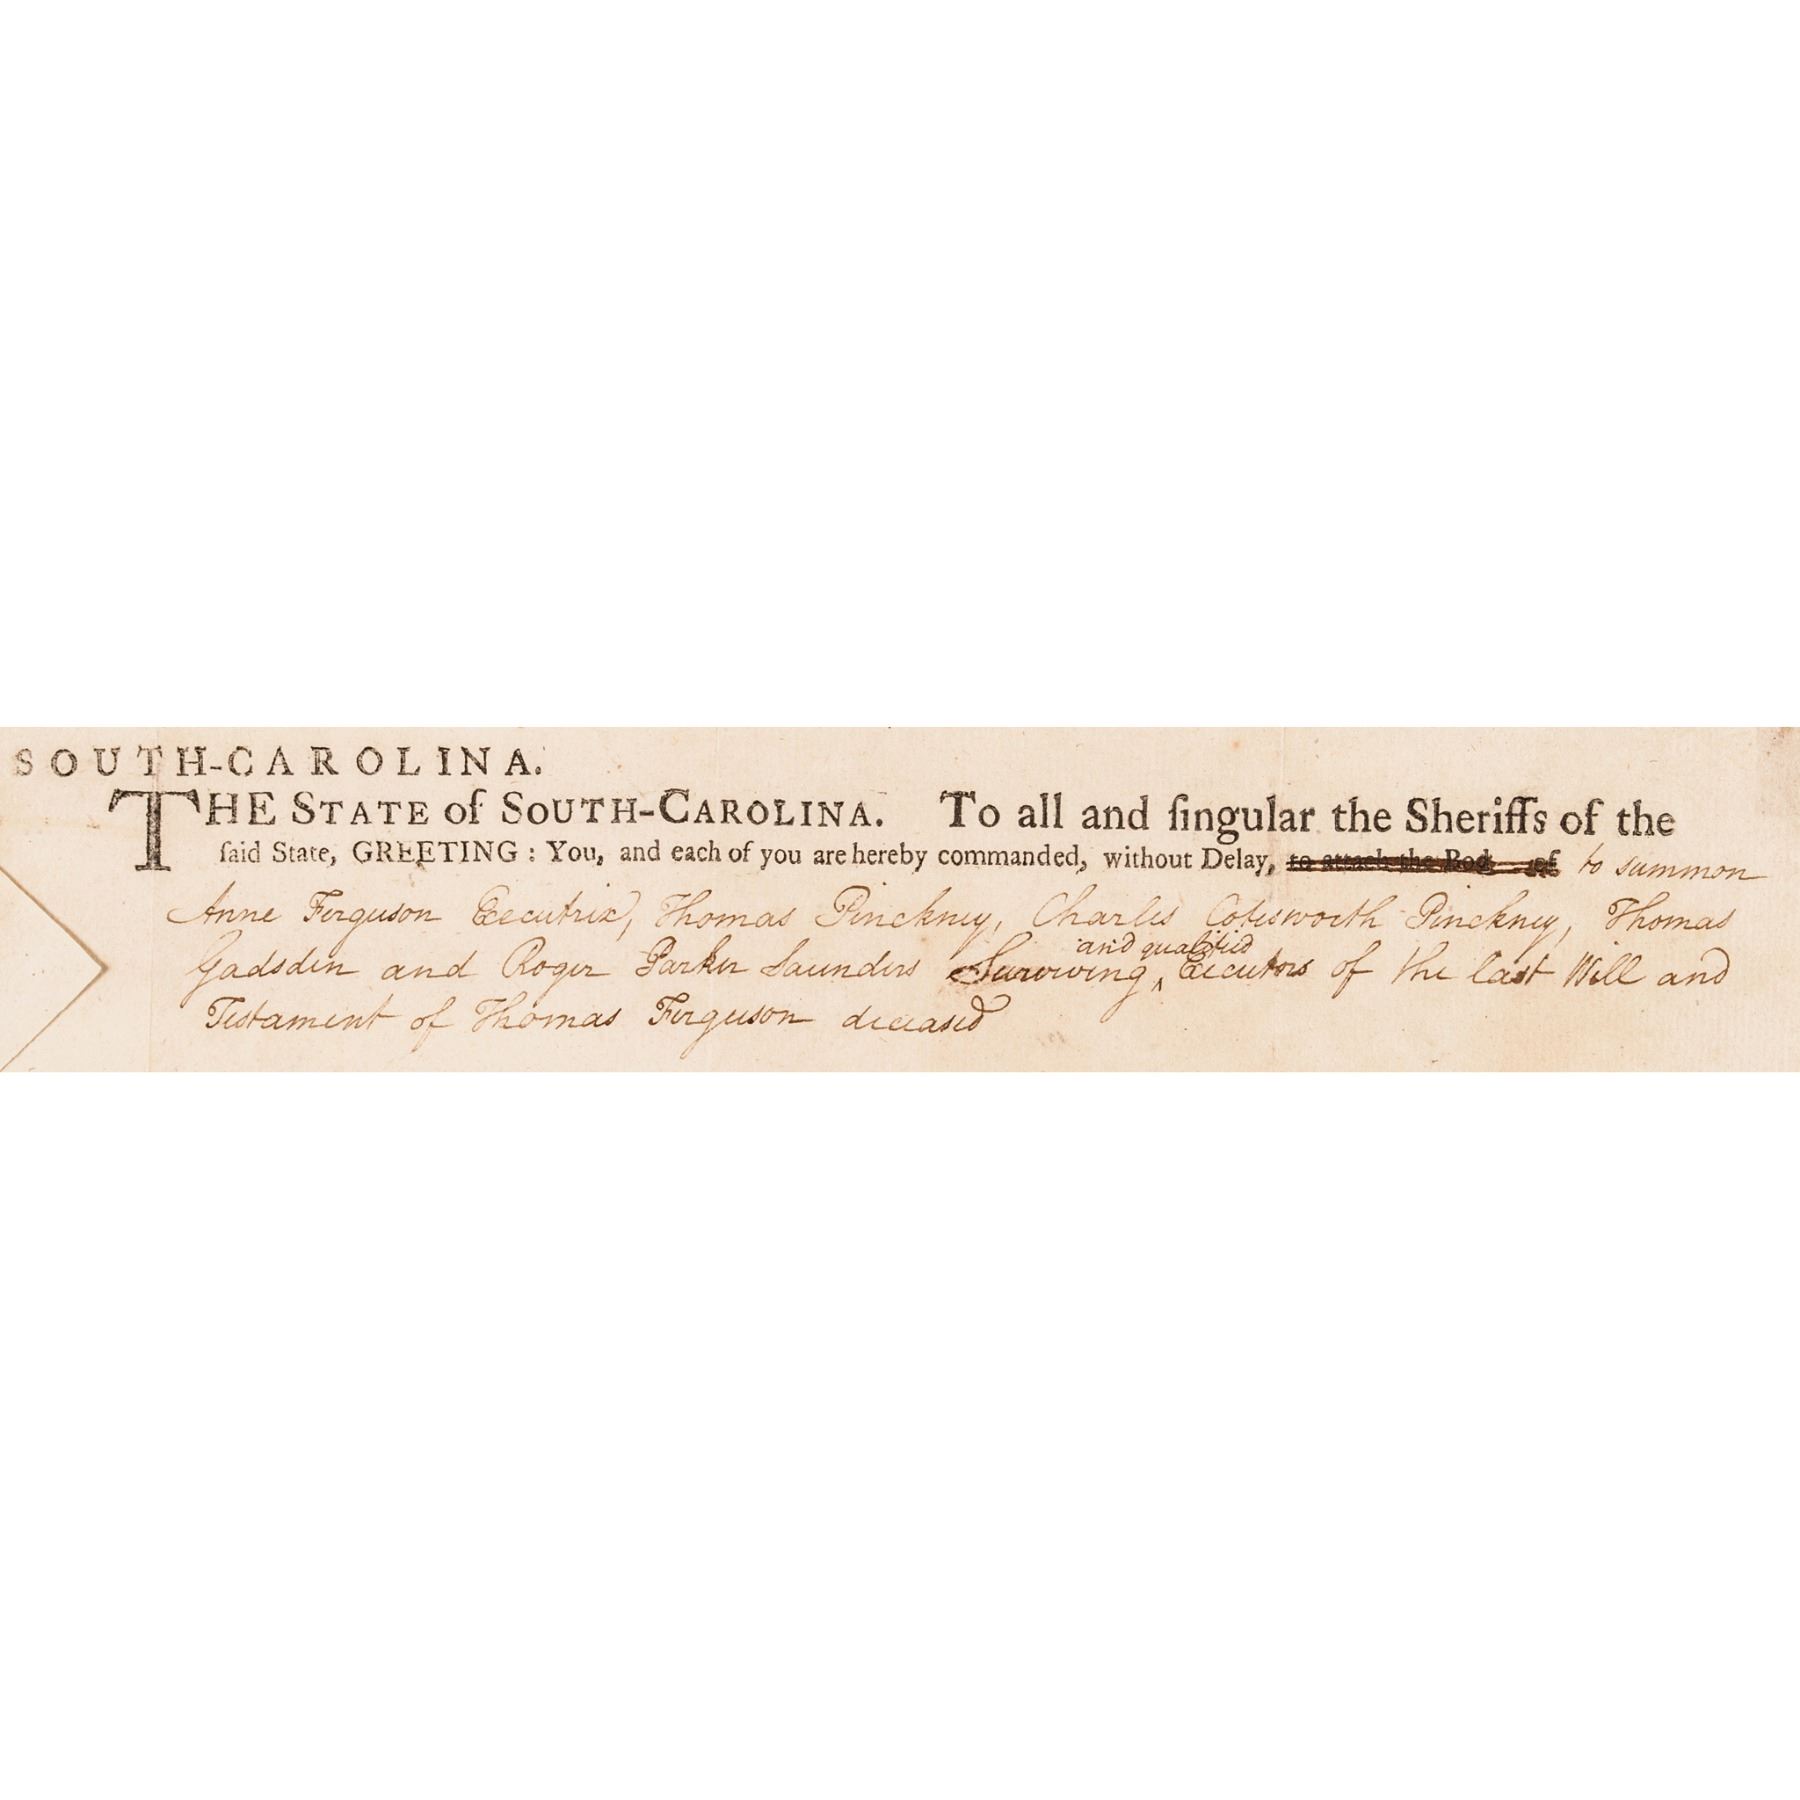 SOUTH-CAROLINA.
THE STATE of SOUTH-CAROLINA. To all and ſingular the Sheriffs of the
ſaid State, GREETING : You, and each of you are hereby commanded, without Delay, to attach the Bod of to summon
Anne Ferguson Executrix, Thomas Pinckney, Charles Cotesworth Pinckney, Thomas
and qualified
Gadsden and Roger Parker Saunders Surviving ‸ Executors of the last Will and
Testament of Thomas Ferguson deceased